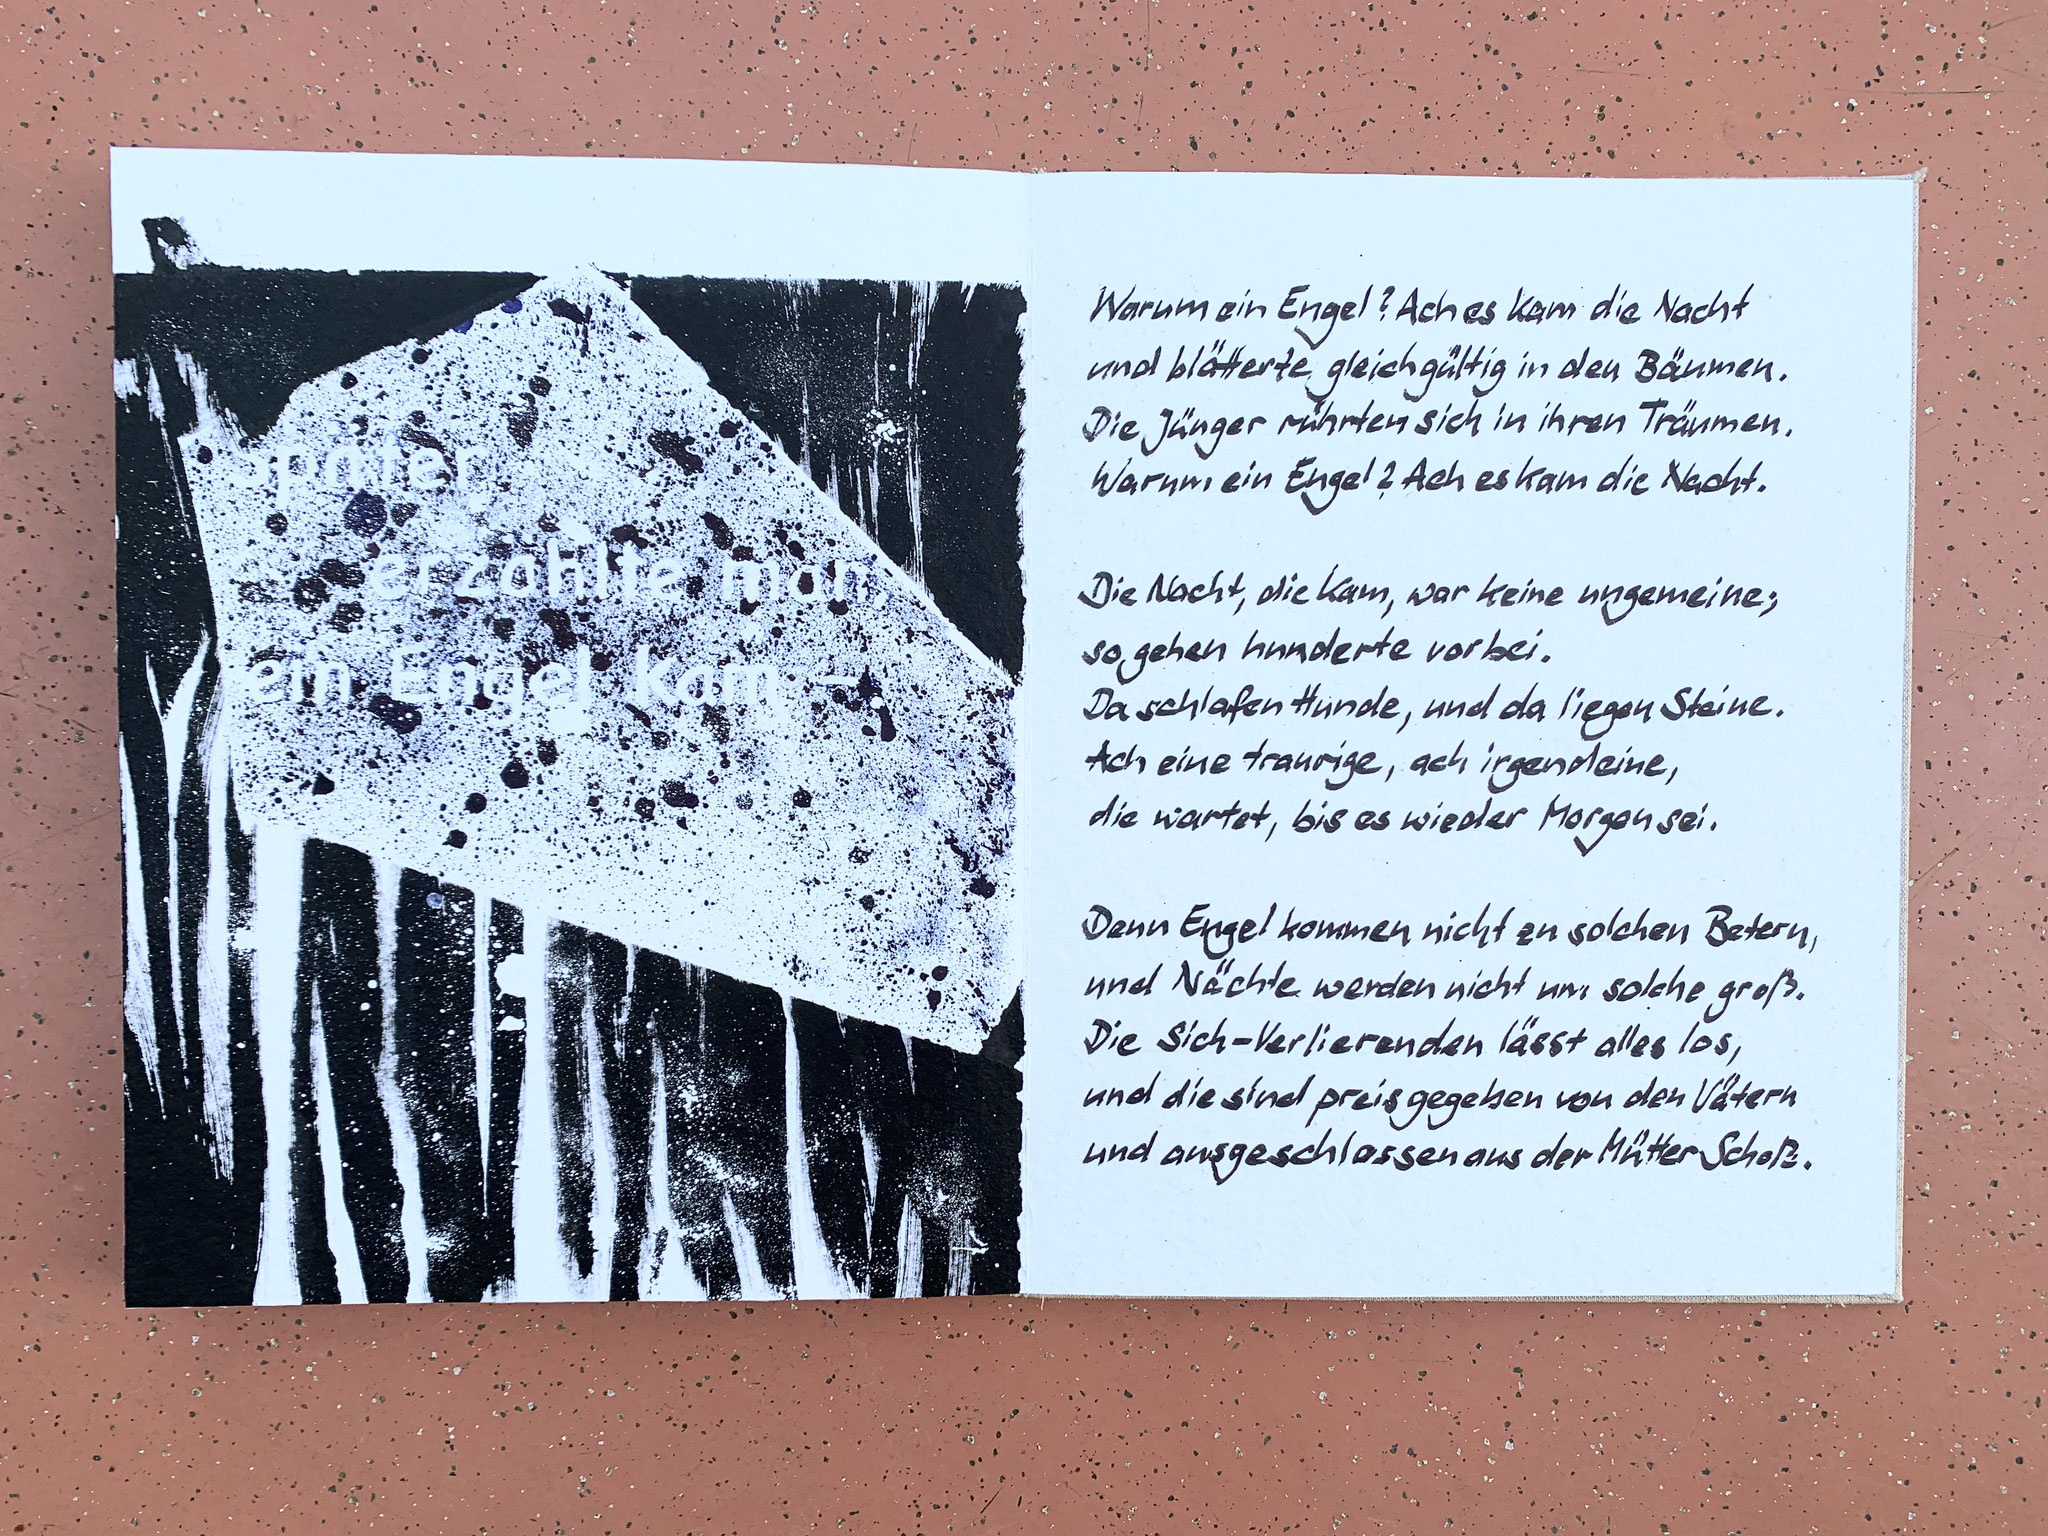 später
erzählte man,
ein Engel kam –
Warum ein Engel? Ach es kam die Nacht
und blätterte gleichgültig in den Bäumen.
Die Jünger rührten sich in ihren Träumen.
Warum ein Engel? Ach es kam die Nacht.
Die Nacht, die kam, war keine ungemeine;
so gehen hunderte vorbei.
Da schlafen Hunde, und da liegen Steine.
Ach eine traurige, ach irgendeine,
die wartet, bis es wieder Morgen sei.
Denn Engel kommen nicht zu solchen Betern,
und Nächte werden nicht um solche groß.
Die Sich-Verlierenden lässt alles los,
und die sind preisgegeben von den Vätern
und ausgeschlossen aus der Mütter Schoß.